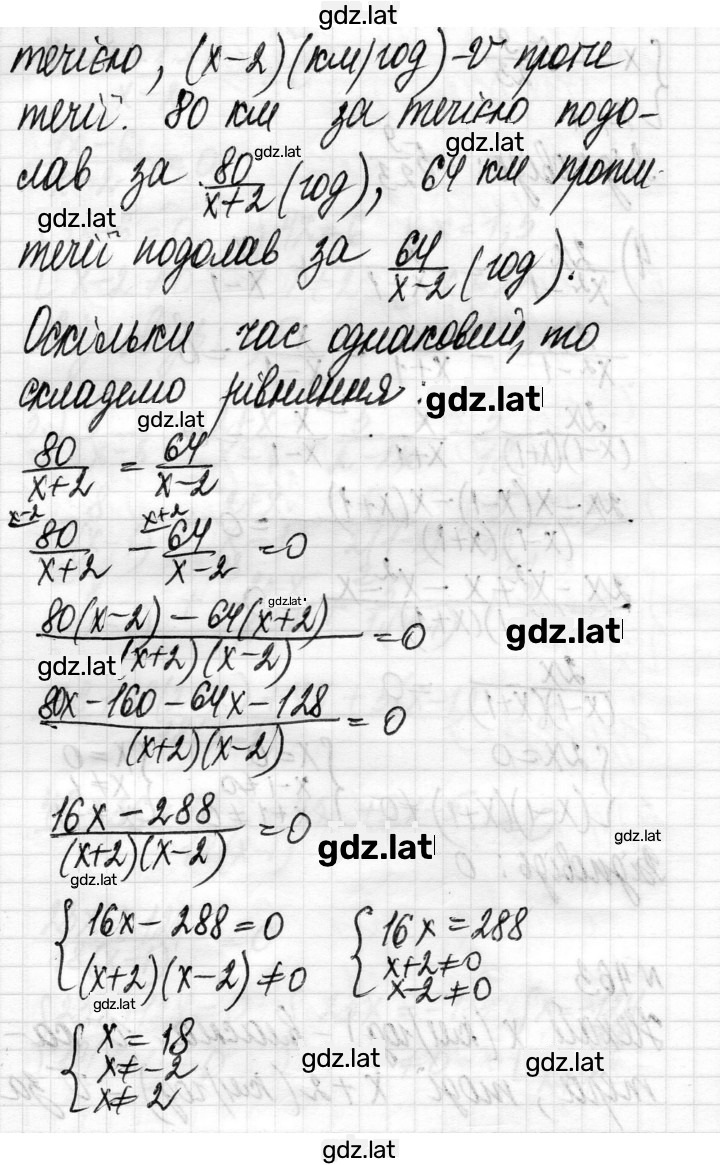 gdz.lat
течією, (x-2)(км/год)-V проте
течії. 80 км за течією подо-
gdz.lat
лав за 80/(x+2) (год), 64 км проти
gdz.lat
gdz.lat
течії подолав за 64/(x-2) (год).
Оскільки час однаковий, то
складемо рівняння: gdz.lat
gdz.lat
80/(x+2) = 64/(x-2)
x-2 x+2
80/(x+2) - 64/(x-2) = 0
gdz.lat
(80(x-2) - 64(x+2))/((x+2)(x-2)) = 0 gdz.lat
gdz.lat
(80x-160-64x-128)/((x+2)(x-2)) = 0
(16x-288)/((x+2)(x-2)) = 0 gdz.lat gdz.lat
gdz.lat
{16x-288=0 {16x=288
(x+2)(x-2)≠0 x+2≠0
x-2≠0
gdz.lat
{x=18
x≠-2 gdz.lat gdz.lat
x≠2
gdz.lat